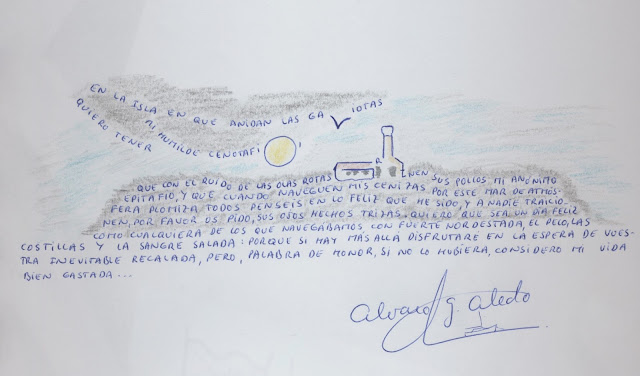 EN LA ISLA EN QUE ANIDAN LAS GAVIOTAS
QUIERO TENER MI HUMILDE CENOTAFIO,
QUE CON EL RUIDO DE LAS OLAS ROTAS SUS POLLOS MI ANÓNIMO
EPITAFIO, Y QUE CUANDO NAVEGUEN MIS CENIZAS POR ESTE MAR DE ATMÓS-
FERA PLOMIZA TODOS PENSEIS, EN LO FELIZ QUE HE SIDO, Y A NADIE TRAICIO-
NEN, POR FAVOR OS PIDO, SUS OJOS HECHOS TRIZAS. QUIERO QUE SEA UN DIA FELIZ
COMO CUALQUIERA DE LOS QUE NAVEGÁBAMOS CON FUERTE NORDESTADA, EL PELO, LAS
COSTILLAS Y LA SANGRE SALADA: PORQUE SI HAY MÁS ALLÁ DISFRUTARE EN LA ESPERA DE VUES-
TRA INEVITABLE RECALADA, PERO, PALABRA DE HONOR, SI NO LO HUBIERA, CONSIDERO MI VIDA
BIEN GASTADA...
Alvaro g. Aledo